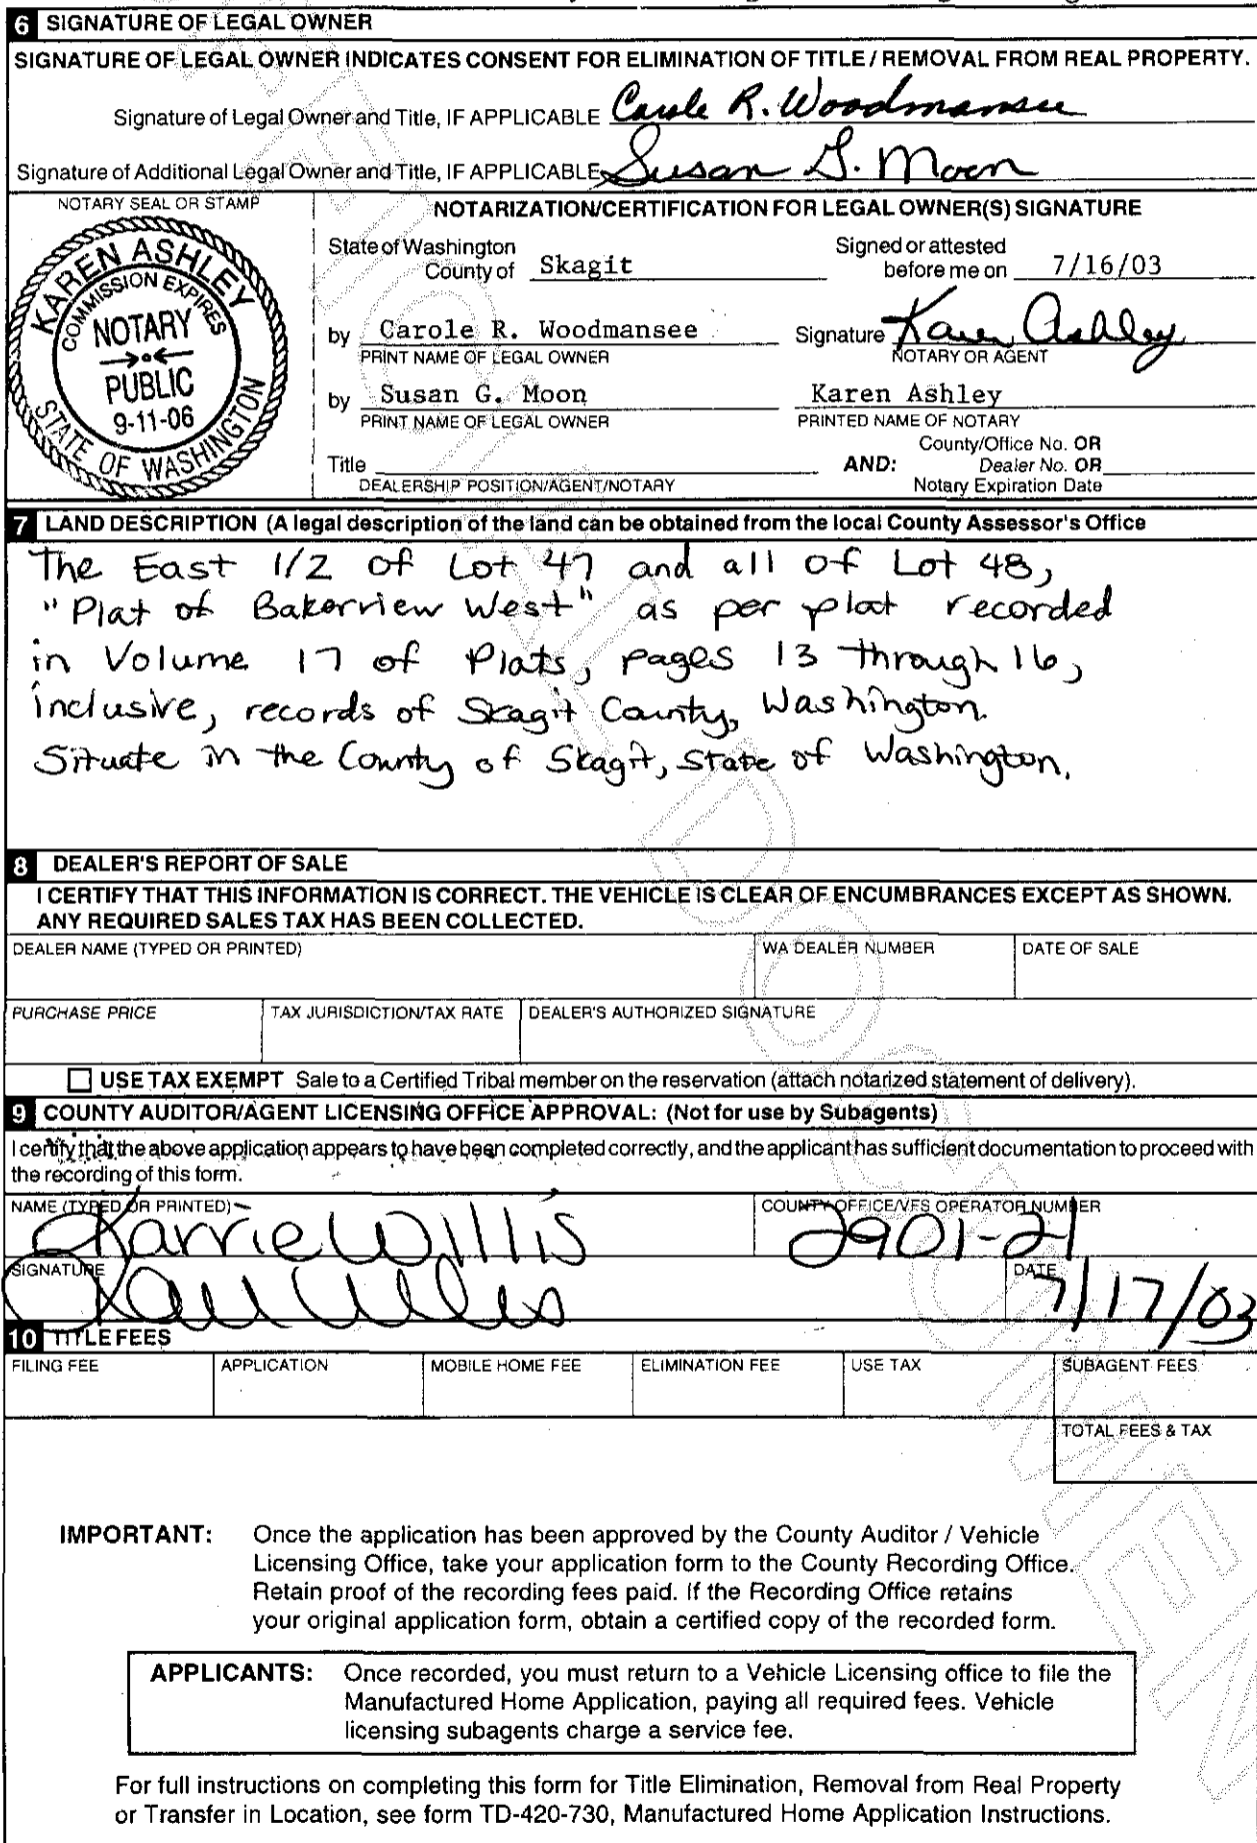 6 SIGNATURE OF LEGAL OWNER
SIGNATURE OF LEGAL OWNER INDICATES CONSENT FOR ELIMINATION OF TITLE / REMOVAL FROM REAL PROPERTY.
Signature of Legal Owner and Title, IF APPLICABLE Carole R. Woodmansee
Signature of Additional Legal Owner and Title, IF APPLICABLE Susan G. Moon
NOTARY SEAL OR STAMP
KAREN ASHLEY
COMMISSION EXPIRES
NOTARY
PUBLIC
9-11-06
STATE OF WASHINGTON
NOTARIZATION/CERTIFICATION FOR LEGAL OWNER(S) SIGNATURE
State of Washington Signed or attested
County of Skagit before me on 7/16/03
by Carole R. Woodmansee Signature Karen Ashley
PRINT NAME OF LEGAL OWNER NOTARY OR AGENT
by Susan G. Moon Karen Ashley
PRINT NAME OF LEGAL OWNER PRINTED NAME OF NOTARY
County/Office No. OR
Title AND: Dealer No. OR
DEALERSHIP POSITION/AGENT/NOTARY Notary Expiration Date
7 LAND DESCRIPTION (A legal description of the land can be obtained from the local County Assessor's Office
The East 1/2 of Lot 47 and all of Lot 48,
"Plat of Bakerview West" as per plat recorded
in Volume 17 of Plats, pages 13 through 16,
inclusive, records of Skagit County, Washington.
Situate in the County of Skagit, State of Washington.
8 DEALER'S REPORT OF SALE
I CERTIFY THAT THIS INFORMATION IS CORRECT. THE VEHICLE IS CLEAR OF ENCUMBRANCES EXCEPT AS SHOWN.
ANY REQUIRED SALES TAX HAS BEEN COLLECTED.
DEALER NAME (TYPED OR PRINTED) WA DEALER NUMBER DATE OF SALE
PURCHASE PRICE TAX JURISDICTION/TAX RATE DEALER'S AUTHORIZED SIGNATURE
USE TAX EXEMPT Sale to a Certified Tribal member on the reservation (attach notarized statement of delivery).
9 COUNTY AUDITOR/AGENT LICENSING OFFICE APPROVAL: (Not for use by Subagents)
I certify that the above application appears to have been completed correctly, and the applicant has sufficient documentation to proceed with
the recording of this form.
NAME (TYPED OR PRINTED) COUNTY OFFICE/VFS OPERATOR NUMBER
Karrie Willis 2901-21
SIGNATURE DATE
7/17/03
10 TITLE FEES
FILING FEE APPLICATION MOBILE HOME FEE ELIMINATION FEE USE TAX SUBAGENT FEES
TOTAL FEES & TAX
IMPORTANT: Once the application has been approved by the County Auditor / Vehicle
Licensing Office, take your application form to the County Recording Office.
Retain proof of the recording fees paid. If the Recording Office retains
your original application form, obtain a certified copy of the recorded form.
APPLICANTS: Once recorded, you must return to a Vehicle Licensing office to file the
Manufactured Home Application, paying all required fees. Vehicle
licensing subagents charge a service fee.
For full instructions on completing this form for Title Elimination, Removal from Real Property
or Transfer in Location, see form TD-420-730, Manufactured Home Application Instructions.